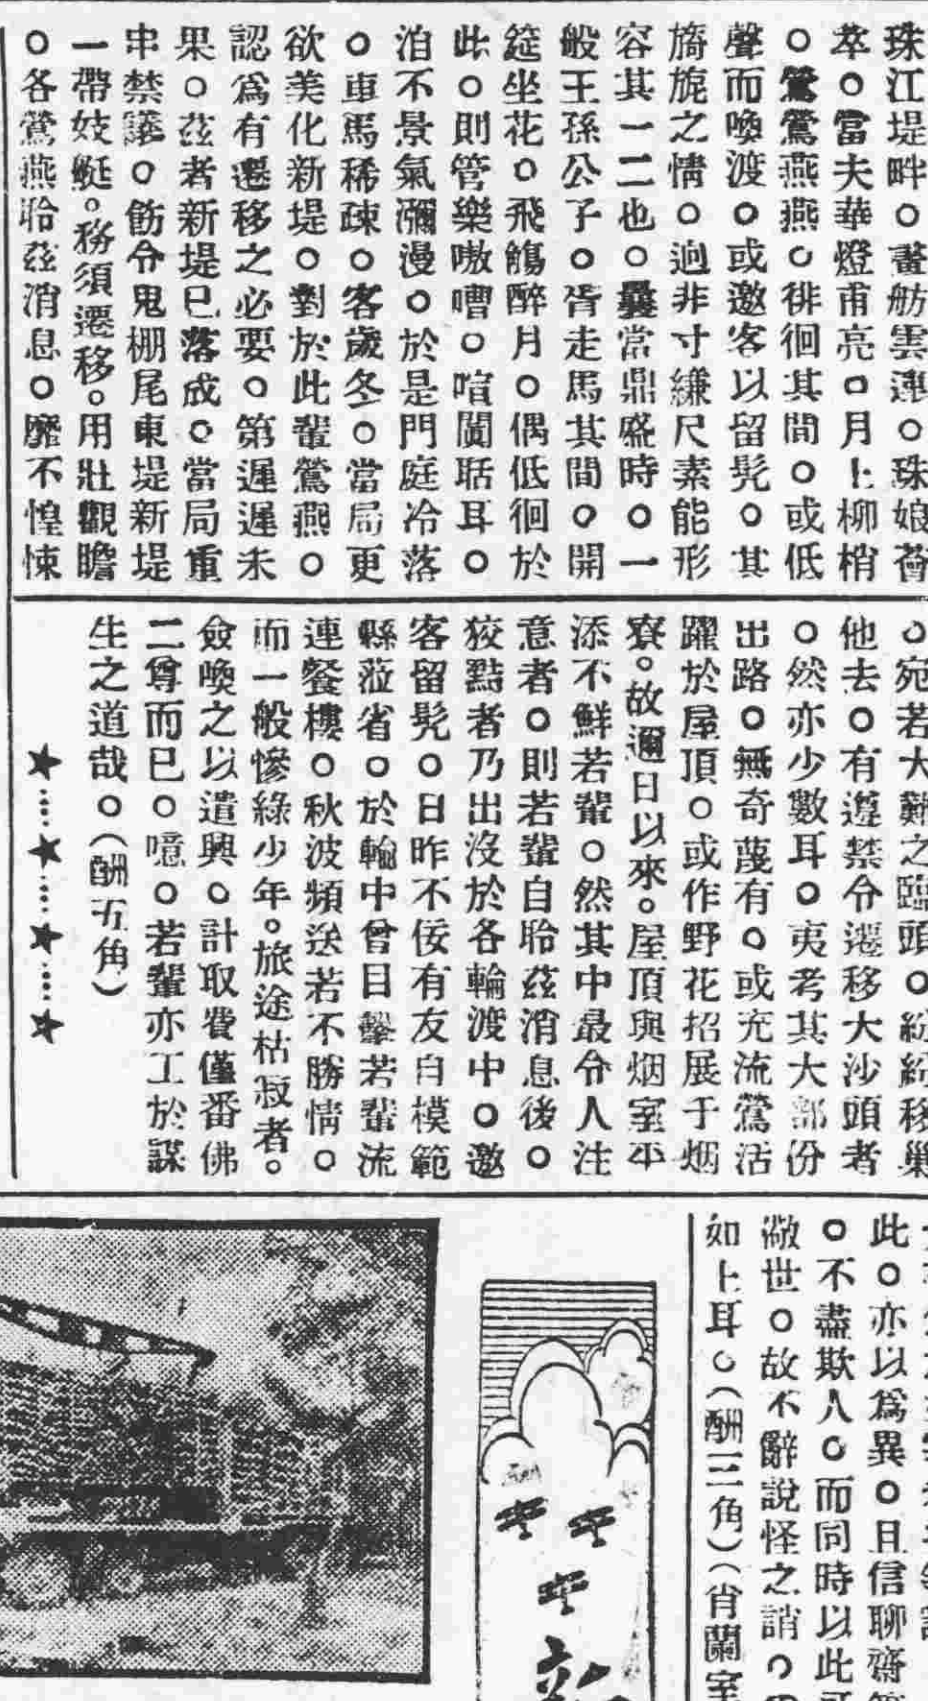 珠江堤畔。畫舫雲連。珠娘薈
萃。當夫華燈甫亮。月上柳梢
。鶯鶯燕燕。徘徊其間。或低
聲而喚渡。或邀客以留髠。其
旖旎之情。逈非寸縑尺素能形
容其一二也。曩當鼎盛時。一
般王孫公子。胥走馬其間。開
筵坐花。飛觴醉月。偶低徊於
此。則管樂嗷嘈。喧闐聒耳。
洎不景氣瀰漫。於是門庭冷落
。車馬稀疎。客歲冬。當局更
欲美化新堤。對於此輩鶯燕。
認爲有遷移之必要。第遲遲未
果。茲者新堤已落成。當局重
申禁議。飭令鬼棚尾東堤新堤
一帶妓艇。務須遷移。用壯觀瞻
。各鶯燕聆茲消息。靡不惶悚
。宛若大難之臨頭。紛紛移巢
他去。有遵禁令遷移大沙頭者
。然亦少數耳。夷考其大部份
出路。無奇蔑有。或充流鶯活
躍於屋頂。或作野花招展于烟
寮。故邇日以來。屋頂與烟室平
添不鮮若輩。然其中最令人注
意者。則若輩自聆茲消息後。
狡黠者乃出沒於各輪渡中。邀
客留髠。日昨不佞有友自模範
縣蒞省。於輪中曾目擊若輩流
連餐樓。秋波頻送若不勝情。
而一般慘綠少年。旅途枯寂者。
僉喚之以遣興。計取費僅番佛
二尊而已。噫。若輩亦工於謀
生之道哉。（酬五角）
此。亦以爲異。且信聊齋
。不盡欺人。而同時以此
澂世。故不辭說怪之誚。
如上耳。（酬三角）（肖蘭室